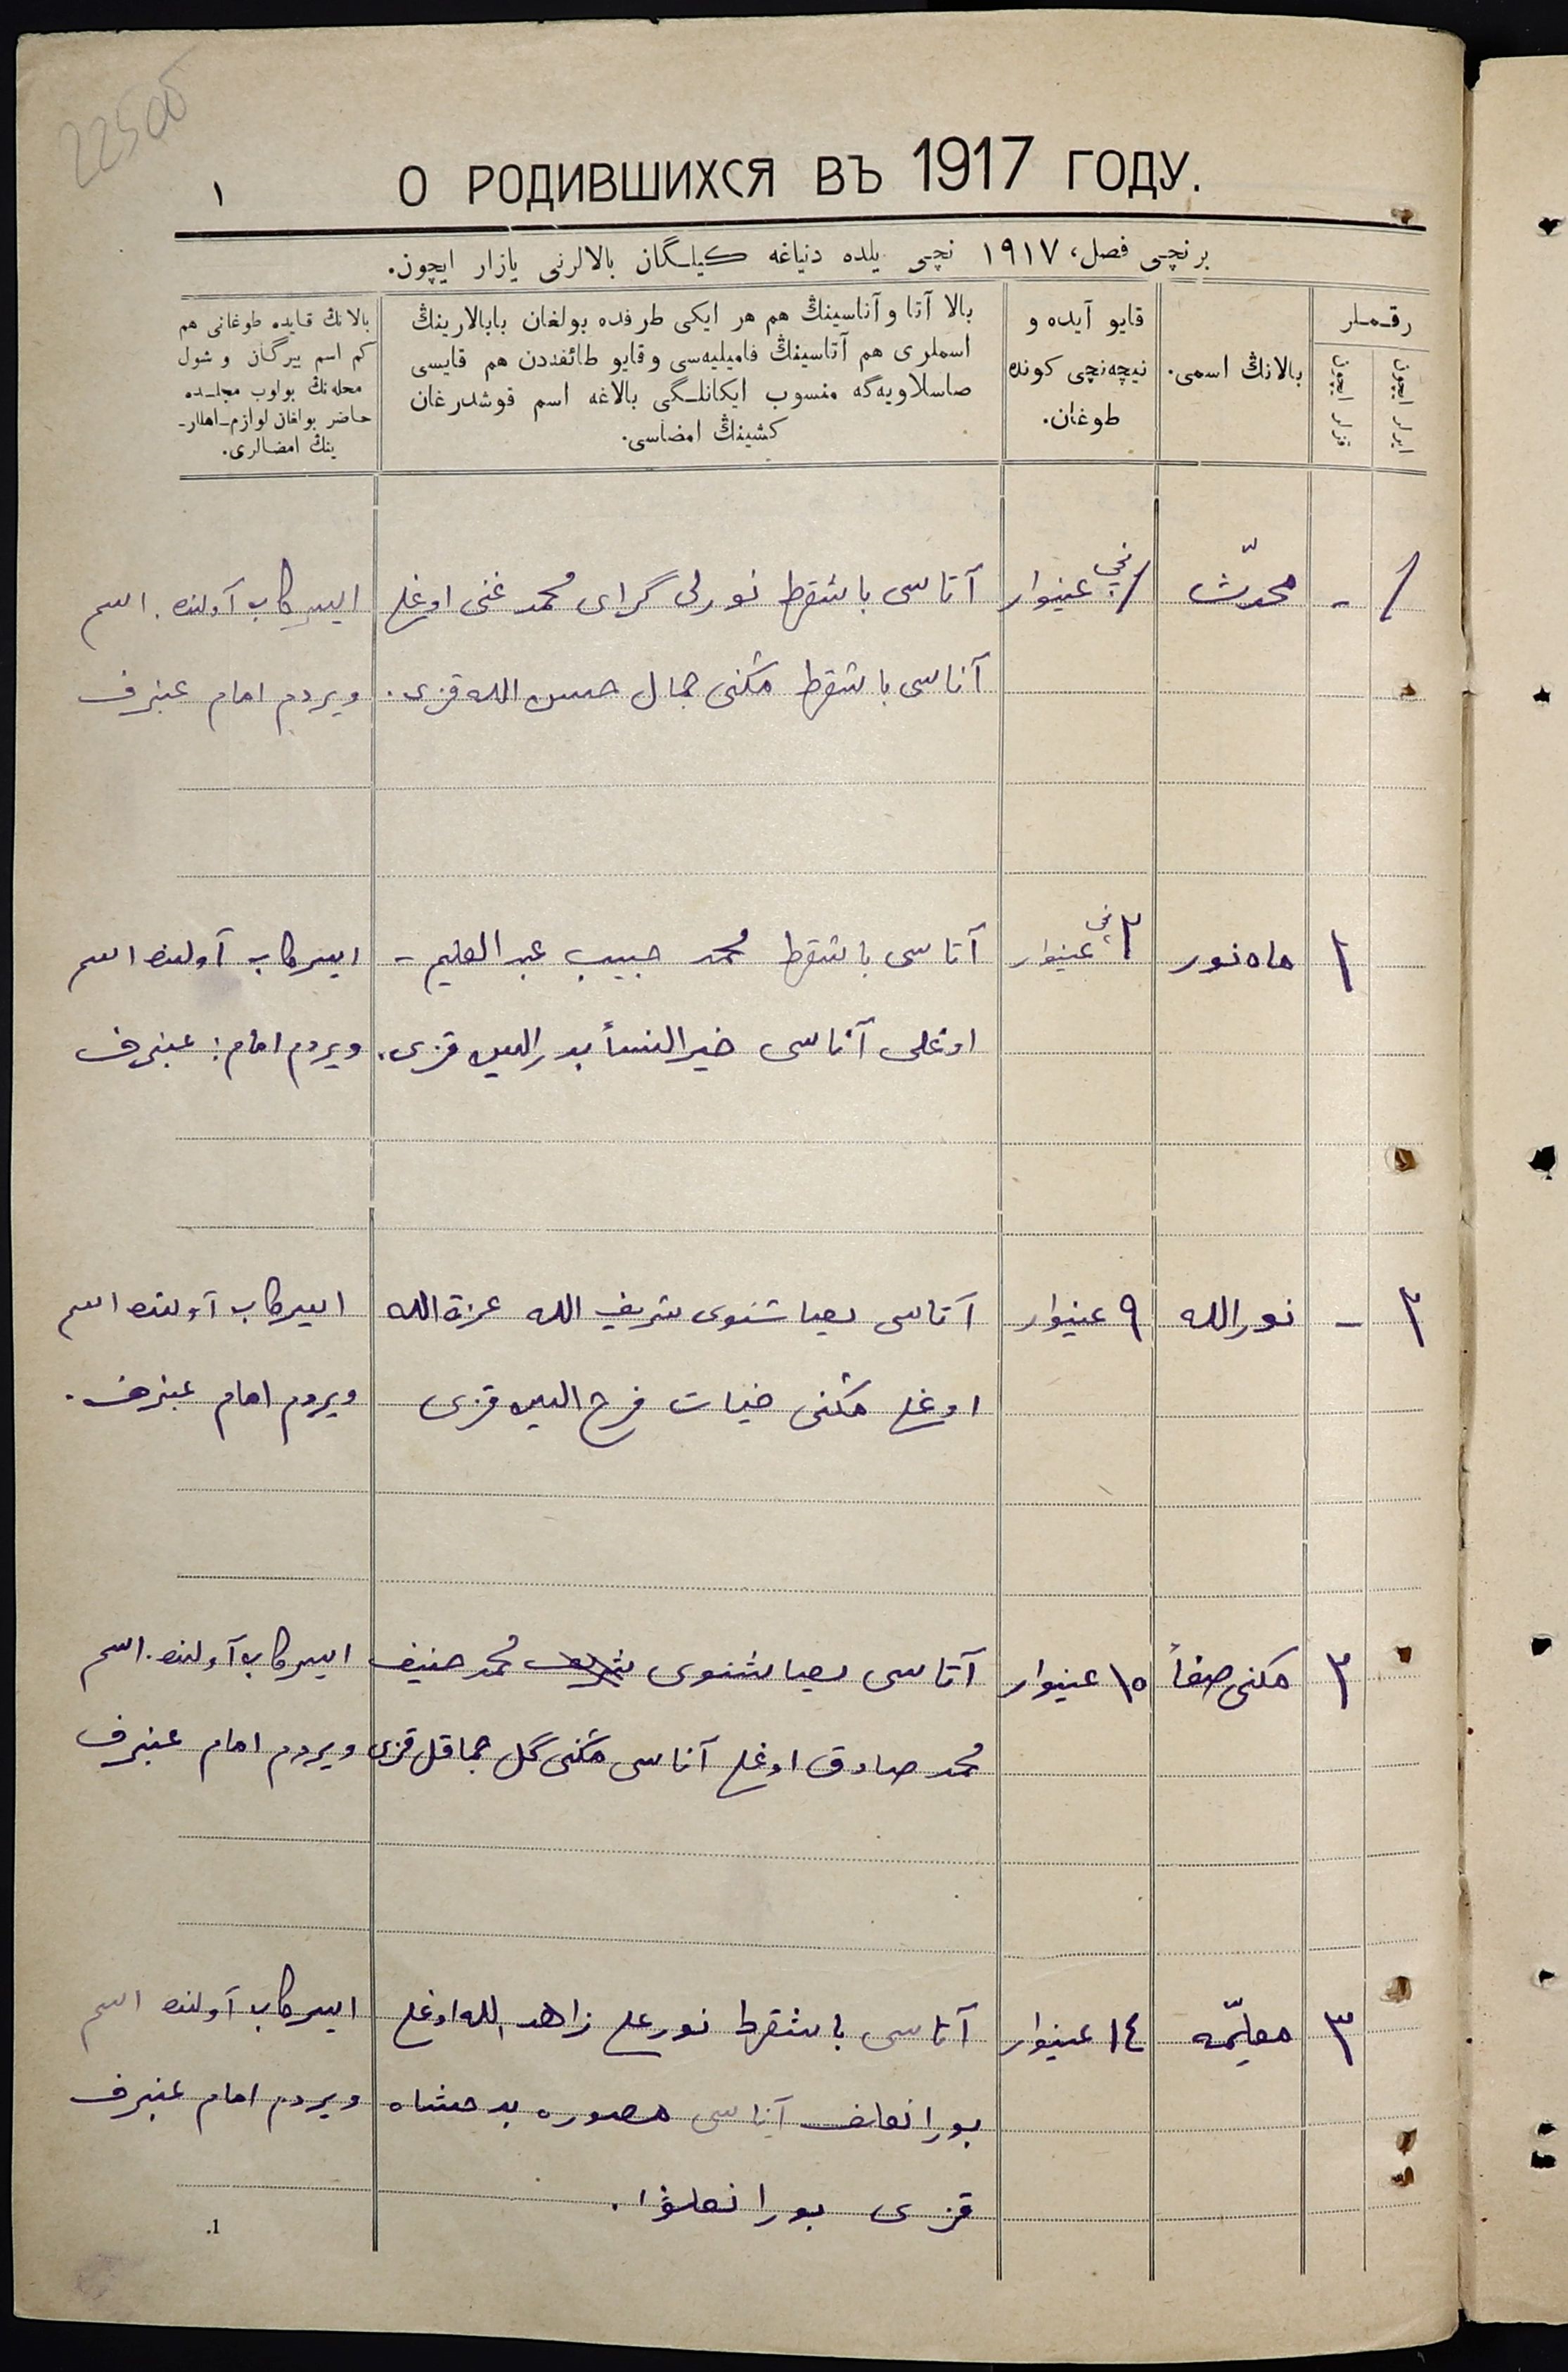 22500
О РОДИВШИХСЯ ВЪ 1917 ГОДУ.
١
برنچی فصل، ١٩١٧ نچی یلده دنیاغه کیلگان بالالرنی یازار ایچون.
رقملر
ایرلر ایچون
قزلر ایچون
بالانڭ اسمی.
قایو آیده و
نیچه‌نچی کونده
طوغان.
بالا آتا و آناسینڭ هم هر ایکی طرفده بولغان بابالارینڭ
اسملری هم آتاسینڭ فامیلیه‌سی و قایو طائفه‌دن هم قایسی
صاسلاویه‌گه منسوب ایکانلگی بالاغه اسم قوشدرغان
کشینڭ امضاسی.
بالانڭ قایده طوغانی هم
کم اسم بیرگان و شول
محله‌نڭ بولوب مجلسده
حاضر بولغان لوازم-اهللر-
ینڭ امضالری.
١
-
محدّث
١ نچی عینوار
آتاسی باشقرط نورلی گرای محمد غنی اوغلی
آناسی باشقرط مڭنی جمال حسن الله قزی.
آولنده. اسم
ویردم امام
١
ماه نور
٢ نچی عینوار
آتاسی باشقرط محمد حبیب عبد العلیم-
اوغلی آناسی خیر النسأ بدر الدین قزی.
آولنده اسم
ویردم امام:
٢
-
نورالله
٩ عینوار
آتاسی شریف الله عزة الله
اوغلی مڭنی حیات فرح الدین قزی
آولنده اسم
ویردم امام
٢
مڭنی صفأ
١٥ عینوار
آتاسی محمد حنیف
محمد صادق اوغلی آناسی مڭنی گل جماقل قزی
آولنده. اسم
ویردم امام
٣
معلّمه
١٤ عینوار
آتاسی باشقرط نور علی زاهد الله اوغلی
آناسی
قزی
آولنده اسم
ویردم امام
1.